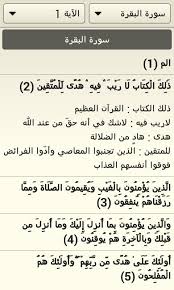 سورة البقرة الآية 1
سورة البقرة
الم (1)
ذَلِكَ الْكِتَابُ لَا رَيْبَ فِيهِ هُدًى لِلْمُتَّقِينَ (2)
ذلك الكتاب : القرآن العظيم
لاريب فيه : لاشك في أنه حق من عند الله
هدى : هاد من الضلالة
للمتقين : الذين تجنبوا المعاصي وأدّوا الفرائض
فوقوا أنفسهم العذاب
الَّذِينَ يُؤْمِنُونَ بِالْغَيْبِ وَيُقِيمُونَ الصَّلَاةَ وَمِمَّا
رَزَقْنَاهُمْ يُنْفِقُونَ (3)
وَالَّذِينَ يُؤْمِنُونَ بِمَا أُنْزِلَ إِلَيْكَ وَمَا أُنْزِلَ مِنْ
قَبْلِكَ وَبِالْآخِرَةِ هُمْ يُوقِنُونَ (4)
أُولَئِكَ عَلَى هُدًى مِنْ رَبِّهِمْ وَأُولَئِكَ هُمُ
الْمُفْلِحُونَ (5)